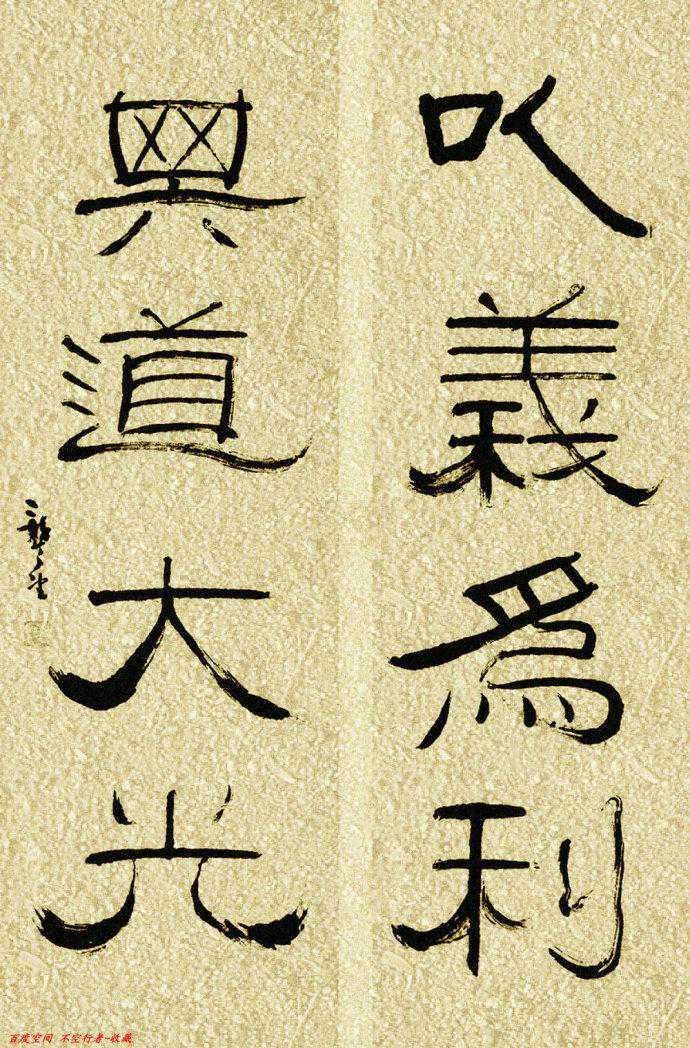 以義為利
道大光
龔望
百度空间 不空行者-收藏